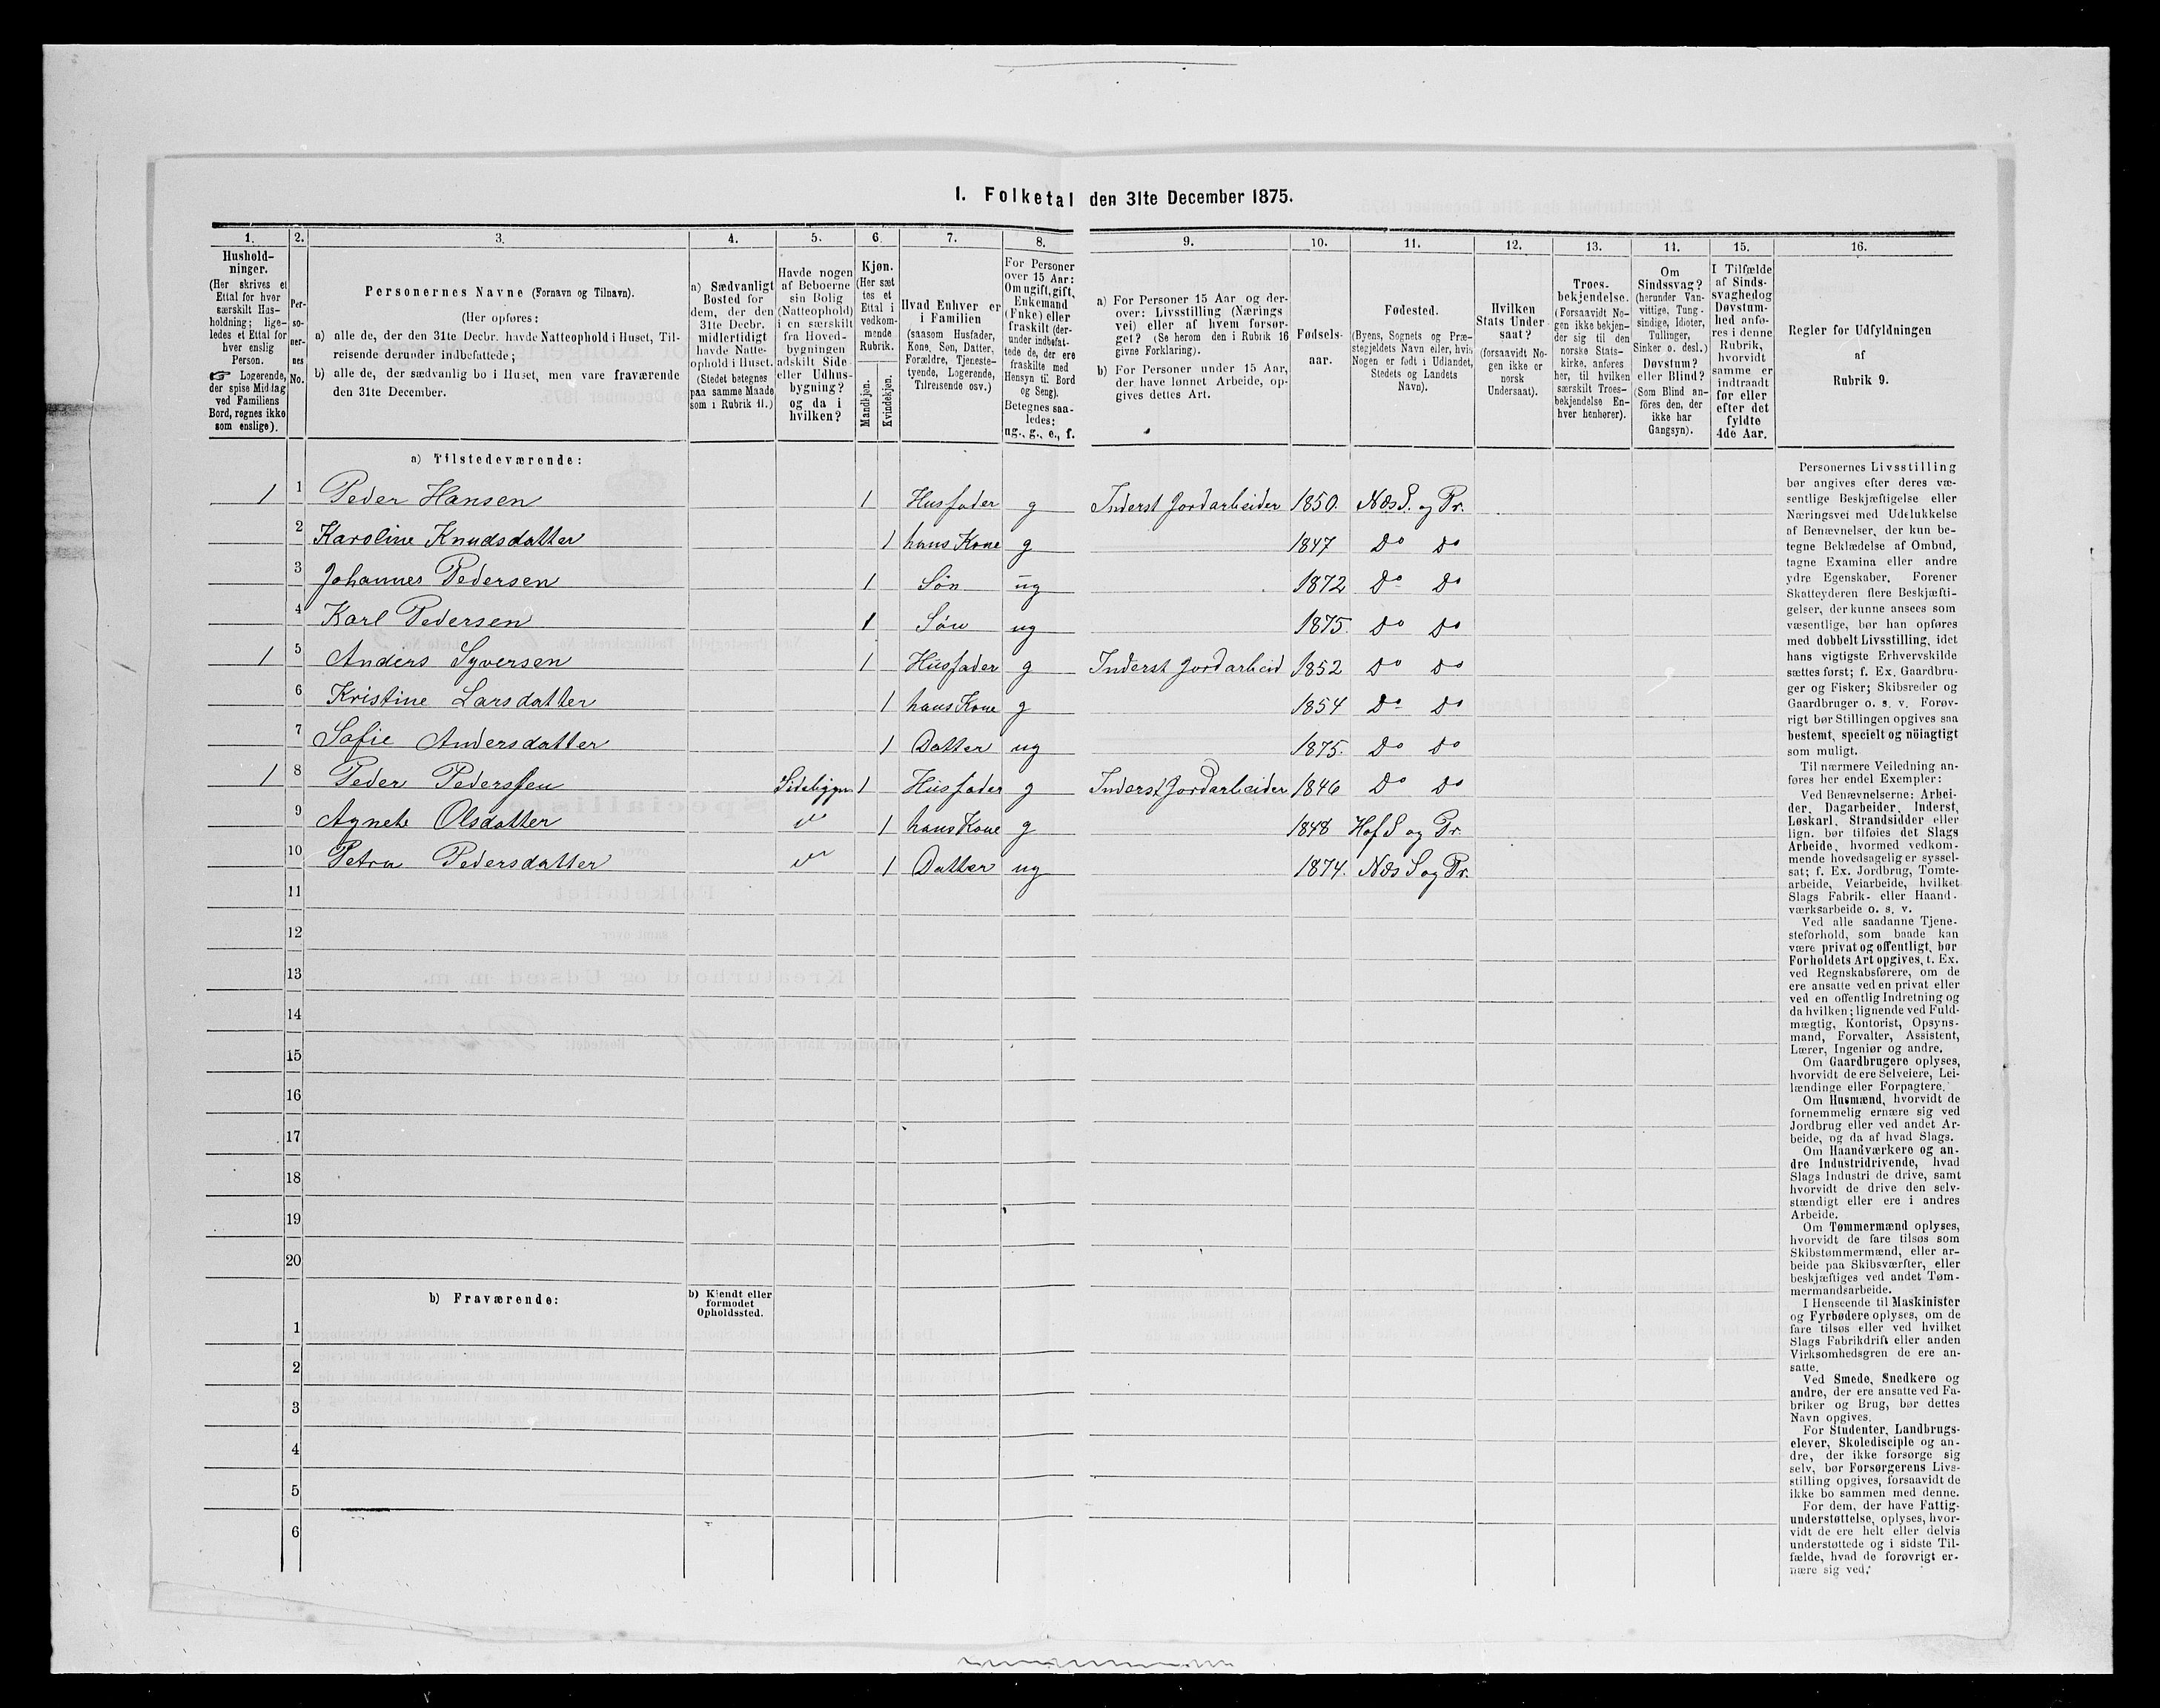 1. Folketal den 31te December 1875.
1. 2. 3. 4. 5. 6. 7. 8. 9. 10. 11. 12. 13. 14. 15. 16.
Hushold-
ninger.
(Her skrives et
Ettal for hver
særskilt Hus-
holdning; lige-
ledes et Ettal for
hver enslig
Person.
☞ Logerende,
der spise Middag
ved Familiens
Bord, regnes ikke
som enslige).
Per-
so-
ner-
nes
No.
Personernes Navne (Fornavn og Tilnavn).
(Her opføres:
a) alle de, der den 31te Decbr. havde Natteophold i Huset, Til-
reisende derunder indbefattede;
b) alle de, der sædvanlig bo i Huset, men vare fraværende
den 31te December.
a) Sædvanligt
Bosted for
dem, der den
31te Decbr.
midlertidigt
havde Natte-
ophold i Huset.
(Stedet betegnes
paa samme Maade
som i Rubrik 11.)
Havde nogen
af Beboerne
sin Bolig
(Natteophold)
i en særskilt
fra Hoved-
bygningen
adskilt Side-
eller Udhus-
bygning?
og da i
hvilken?
Kjøn.
(Her sæt
tes et
Ettal i
vedkom-
mende
Rubrik.
Mandkjøn.
Kvindekjøn.
Hvad Enhver er
i Familien
(saasom Husfader,
Kone, Søn, Datter,
Forældre, Tjeneste-
tyende, Logerende,
Tilreisende osv.)
For Personer
over 15 Aar:
Om ugift, gift,
Enkemand
(Enke) eller
fraskilt (der-
under indbefat-
tede de, der ere
fraskilte med
Hensyn til Bord
og Seng).
Betegnes saa-
ledes:
ug., g., e., f.
a) For Personer 15 Aar og der-
over: Livsstilling (Nærings
vei) eller af hvem forsør-
get? (Se herom den i Rubrik 16
givne Forklaring).
b) For Personer under 15 Aar,
der have lønnet Arbeide, op-
gives dettes Art.
Fødsels-
aar.
Fødested.
(Byens, Sognets og Præ-
stegjeldets Navn eller, hvis
Nogen er født i Udlandet,
Stedets og Landets
Navn).
Hvilken
Stats Under-
saat?
(forsaavidt No-
gen ikke er
norsk
Undersaat).
Troes-
bekjendelse.
(Forsaavidt No-
gen ikke bekjen-
der sig til den
norske Stats-
kirke, anføres
her, til hvilken
særskilt Troes-
bekjendelse En-
hver henhører).
Om
Sindssvag?
(herunder Van-
vittige, Tung-
sindige, Idioter,
Tullinger,
Sinker o. desl.)
Døvstum?
eller Blind?
(Som Blind an-
föres den, der
ikke har
Gangsyn).
I Tilfælde
af Sinds-
svaghed og
Døvstum-
hed anfø-
res i denne
Rubrik,
hvorvidt
samme er
indtraadt
før eller
efter det
fyldte
4de Aar.
Regler for Udfyldningen
af
Rubrik 9.
a) Tilstedeværende:
1 1 Peder Hansen 1 Husfader g Inderst Jordarbeider 1850. Næs S. og Pr.
2 Karoline Knudsdatter 1 hans Kone g 1847 Do Do
3 Johannes Pedersen 1 Søn ug 1872 Do Do
4 Karl Pedersen 1 Søn ug 1875. Do Do
1 5 Anders Syversen 1 Husfader g Inderst Jordarbeid 1852 Do Do
6 Kristine Larsdatter 1 hans Kone g 1854 Do Do
7 Sofie Andersdatter 1 Datter ug 1875. Do Do
1 8 Peder Pederssen Sidebygn 1 Husfader g Inderst Jordarbeider 1846 Do Do
9 Agnete Olsdatter " 1 hans Kone g 1848 Hof S og Pr.
10 Petra Pedersdatter " 1 Datter ug 1874. Næs S og Pr.
11
12
13
14
15
16
17
18
19
20
b) Fraværende:
b) Kjendt eller
formodet
Opholdssted.
1
2
3
4
5
6
Personernes Livsstilling
bør angives efter deres væ-
sentlige Beskjæftigelse eller
Næringsvei med Udelukkelse
af Benævnelser, der kun be-
tegne Beklædelse af Ombud,
tagne Examina eller andre
ydre Egenskaber. Forener
Skatteyderen flere Beskjæfti-
gelser, der kunne ansees som
væsentlige, bør han opføres
med dobbelt Livsstilling, idet
hans vigtigste Erhvervskilde
sættes først; f. Ex. Gaardbru-
ger og Fisker; Skibsreder og
Gaardbruger o. s. v. Forøv-
rigt bør Stillingen opgives saa
bestemt, specielt og nöiagtigt
som muligt.
Til nærmere Veiledning an-
føres her endel Exempler:
Ved Benævnelserne: Arbei-
der, Dagarbeider, Inderst,
Løskarl, Strandsidder eller
lign. bør tilføies det Slags
Arbeide, hvormed vedkom-
mende hovedsagelig er syssel-
sat; f. Ex. Jordbrug, Tomte-
arbeide, Veiarbeide, hvilket
Slags Fabrik- eller Haand-
værksarbeide o. s. v.
Ved alle saadanne Tjene-
steforhold, som baade kan
være privat og offentligt, bør
Forholdets Art opgives, t. Ex.
ved Regnskabsførere, om de
ere ansatte ved en privat eller
ved en offentlig Indretning og
da hvilken; lignende ved Fuld-
mægtig, Kontorist, Opsyns-
mand, Forvalter, Assistent,
Lærer, Ingeniør og andre.
Om Gaardbrugere oplyses,
hvorvidt de ere Selveiere, Lei-
lændinge eller Forpagtere.
Om Husmænd, hvorvidt de
fornemmelig ernære sig ved
Jordbrug eller ved andet Ar-
beide, og da af hvad Slags.
Om Haandværkere og an-
dre Industridrivende, hvad
Slags Industri de drive, samt
hvorvidt de drive den selv-
stændigt eller ere i andres
Arbeide.
Om Tømmermænd oplyses,
hvorvidt de fare tilsøs som
Skibstømmermænd, eller ar-
beide paa Skibsværfter, eller
beskjæftiges ved andet Tøm-
mermandsarbeide.
I Henseende til Maskinister
og Fyrbødere oplyses, om de
fare tilsøs eller ved hvilket
Slags Fabrikdrift eller anden
Virksomhedsgren de ere an-
satte.
Ved Smede, Snedkere og
andre, der ere ansatte ved Fa-
briker og Brug, bør dettes
Navn opgives.
For Studenter, Landbrugs-
elever, Skoledisciple og an-
dre, der ikke forsørge sig
selv, bør Forsørgerens Livs-
stilling opgives, forsaavidt de
ikke bo sammen med denne.
For dem, der have Fattig-
understøttelse, oplyses, hvor-
vidt de ere helt eller delvis
understøttede og i sidste Til-
fælde, hvad de forøvrigt er-
nære sig ved.